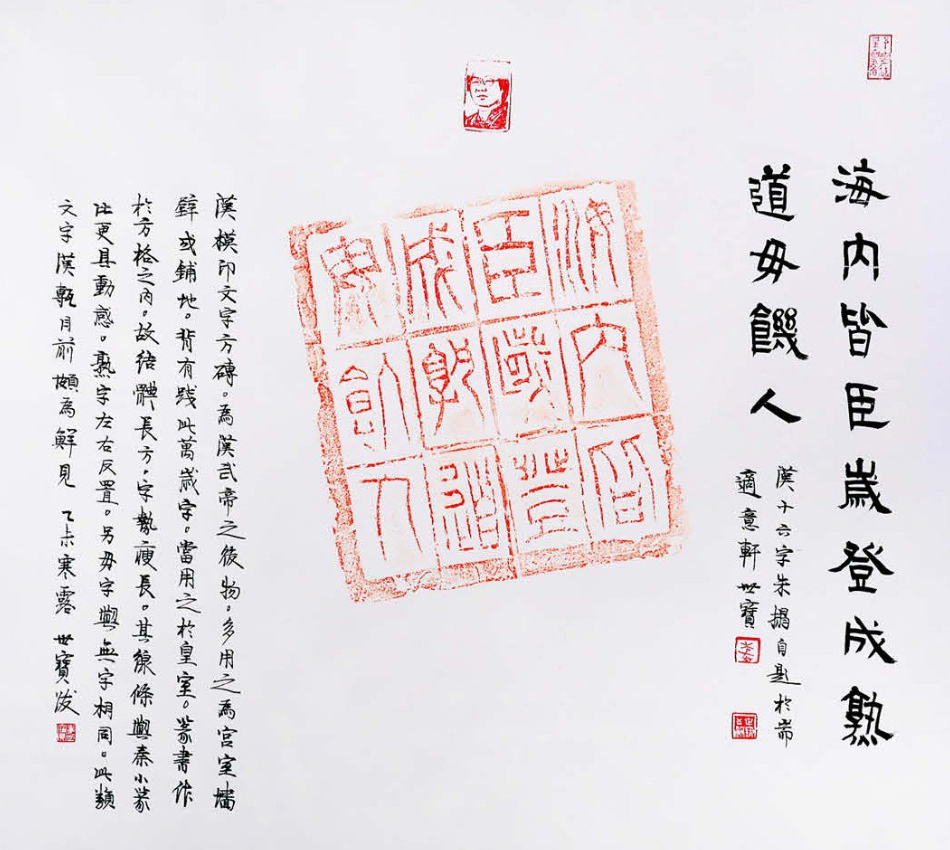 海内皆臣歲登成熟
道毋饑人
漢十六字朱搨自題於
適意軒 世寶
海内皆
臣歲登
成孰道
毋飢人
漢模印文字方磚。為漢武帝之後物。多用之為宮室墻
或鋪地。背有踐此萬歲字。當用之於皇室。篆書作
於方格之内。故结體長方。字勢瘦長。其線條與秦小篆
比更具動感。熟字左右反置。另毋字與無字相同。此類
文字漢甎目前頗為鮮見 乙未寒露 世寶跋